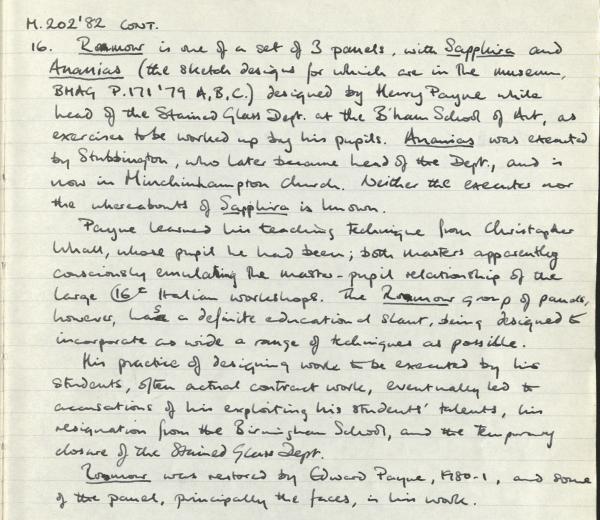 M.202'82 CONT.
16. Rosmour is one of a set of 3 panels, with Sapphira and
Ananias (the sketch designs for which are in the museum,
BMAG P.171'79 A,B,C.) designed by Henry Payne while
head of the Stained Glass Dept. at the B'ham School of Art, as
exercises to be worked up by his pupils. Ananias was executed
by Stubbington, who later became head of the Dept., and is
now in Minchinhampton Church. Neither the executer nor
the whereabouts of Sapphira is known.
Payne learned his teaching technique from Christopher
Whall, whose pupil he had been; both masters apparently
consciously emulating the master-pupil relationship of the
large 16c Italian workshops. The Rosmour group of panels,
however, has a definite educational slant, being designed to
incorporate as wide a range of techniques as possible.
His practice of designing work to be executed by his
students, often actual contract work, eventually led to
accusations of his exploiting his students' talents, his
resignation from the Birmingham School, and the temporary
closure of the Stained Glass Dept.
Rosmour was restored by Edward Payne, 1980-1, and some
of the panel, principally the faces, is his work.